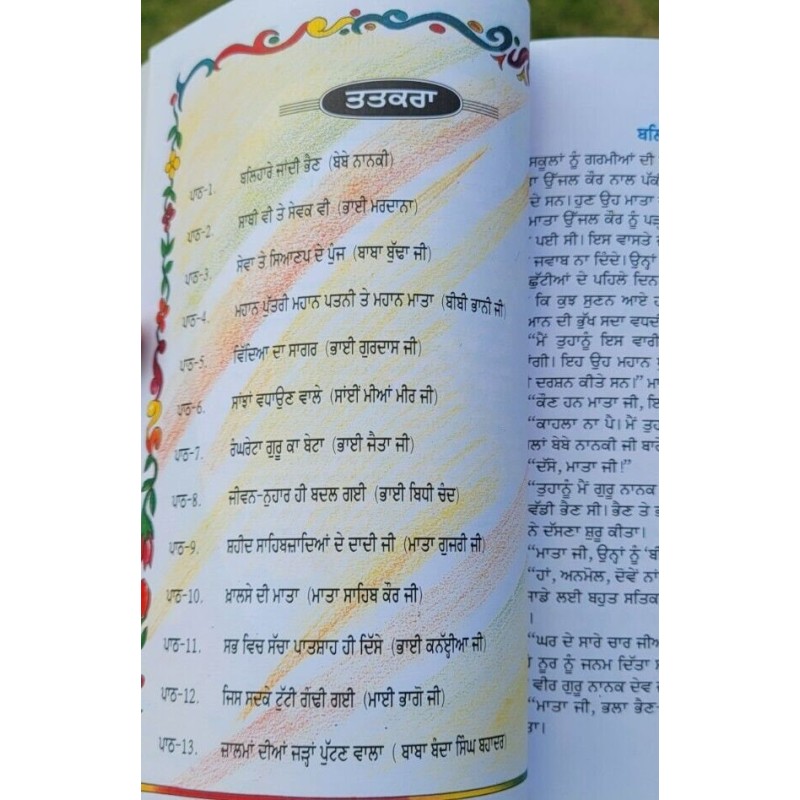 ਤਤਕਰਾ
ਪਾਠ-1. ਬਲਿਹਾਰੇ ਜਾਂਦੀ ਭੈਣ (ਬੇਬੇ ਨਾਨਕੀ)
ਪਾਠ-2. ਸਾਬੀ ਵੀ ਤੇ ਸੇਵਕ ਵੀ (ਭਾਈ ਮਰਦਾਨਾ)
ਪਾਠ-3. ਸੇਵਾ ਤੇ ਸਿਆਣਪ ਦੇ ਪੁੰਜ (ਬਾਬਾ ਬੁੱਢਾ ਜੀ)
ਪਾਠ-4. ਮਹਾਨ ਪੁੱਤਰੀ ਮਹਾਨ ਪਤਨੀ ਤੇ ਮਹਾਨ ਮਾਤਾ (ਬੀਬੀ ਭਾਨੀ ਜੀ)
ਪਾਠ-5. ਵਿੱਦਿਆ ਦਾ ਸਾਗਰ (ਭਾਈ ਗੁਰਦਾਸ ਜੀ)
ਪਾਠ-6. ਸਾਂਝਾਂ ਵਧਾਉਣ ਵਾਲੇ (ਸਾਂਈਂ ਮੀਆਂ ਮੀਰ ਜੀ)
ਪਾਠ-7. ਰੰਘਰੇਟਾ ਗੁਰੂ ਕਾ ਬੇਟਾ (ਭਾਈ ਜੈਤਾ ਜੀ)
ਪਾਠ-8. ਜੀਵਨ-ਨੁਹਾਰ ਹੀ ਬਦਲ ਗਈ (ਭਾਈ ਬਿਧੀ ਚੰਦ)
ਪਾਠ-9. ਸ਼ਹੀਦ ਸਾਹਿਬਜ਼ਾਦਿਆਂ ਦੇ ਦਾਦੀ ਜੀ (ਮਾਤਾ ਗੁਜਰੀ ਜੀ)
ਪਾਠ-10. ਖ਼ਾਲਸੇ ਦੀ ਮਾਤਾ (ਮਾਤਾ ਸਾਹਿਬ ਕੌਰ ਜੀ)
ਪਾਠ-11. ਸਭ ਵਿਚ ਸੱਚਾ ਪਾਤਸ਼ਾਹ ਹੀ ਦਿੱਸੇ (ਭਾਈ ਕਨੱਈਆ ਜੀ)
ਪਾਠ-12. ਜਿਸ ਸਦਕੇ ਟੁੱਟੀ ਗੰਢੀ ਗਈ (ਮਾਈ ਭਾਗੋ ਜੀ)
ਪਾਠ-13. ਜ਼ਾਲਮਾਂ ਦੀਆਂ ਜੜ੍ਹਾਂ ਪੁੱਟਣ ਵਾਲਾ ( ਬਾਬਾ ਬੰਦਾ ਸਿੰਘ ਬਹਾਦਰ)
ਸਕੂਲਾਂ ਨੂੰ ਗਰਮੀਆਂ ਦੀ
ਉੱਜਲ ਕੌਰ ਨਾਲ
ਦੇ ਸਨ। ਹੁਣ ਉਹ ਮਾਤਾ
ਮਾਤਾ ਉੱਜਲ ਕੌਰ ਨੂੰ
ਪਈ ਸੀ। ਇਸ ਵਾਸਤੇ
ਜਵਾਬ ਨਾ ਦਿੰਦੇ। ਉਨ੍ਹਾਂ
ਛੁੱਟੀਆਂ ਦੇ ਪਹਿਲੇ ਦਿਨ
ਕਿ ਕੁਝ ਸੁਣਨ ਆਏ
ਦੀ ਭੁੱਖ ਸਦਾ
“ਮੈਂ ਤੁਹਾਨੂੰ ਇਸ ਵਾਰੀ
ਇਹ ਉਹ ਮਹਾਨ
ਦਰਸ਼ਨ ਕੀਤੇ ਸਨ।”
“ਕੌਣ ਹਨ ਮਾਤਾ ਜੀ,
“ਕਾਹਲਾ ਨਾ ਪੈ। ਮੈਂ
ਬੇਬੇ ਨਾਨਕੀ ਜੀ ਬਾਰੇ
“ਦੱਸੋ, ਮਾਤਾ ਜੀ!”
“ਤੁਹਾਨੂੰ ਮੈਂ ਗੁਰੂ ਨਾਨਕ
ਵੱਡੀ ਭੈਣ ਸੀ। ਭੈਣ ਤੇ
ਨੇ ਦੱਸਣਾ ਸ਼ੁਰੂ ਕੀਤਾ।
“ਮਾਤਾ ਜੀ, ਉਨ੍ਹਾਂ ਨੂੰ
“ਹਾਂ, ਅਨਮੋਲ, ਦੋਵੇਂ
ਲਈ ਬਹੁਤ
“ਘਰ ਦੇ ਸਾਰੇ ਚਾਰ
ਨੂਰ ਨੂੰ ਜਨਮ ਦਿੱਤਾ
ਵੀਰ ਗੁਰੂ ਨਾਨਕ ਦੇਵ
“ਮਾਤਾ ਜੀ, ਭਲਾ